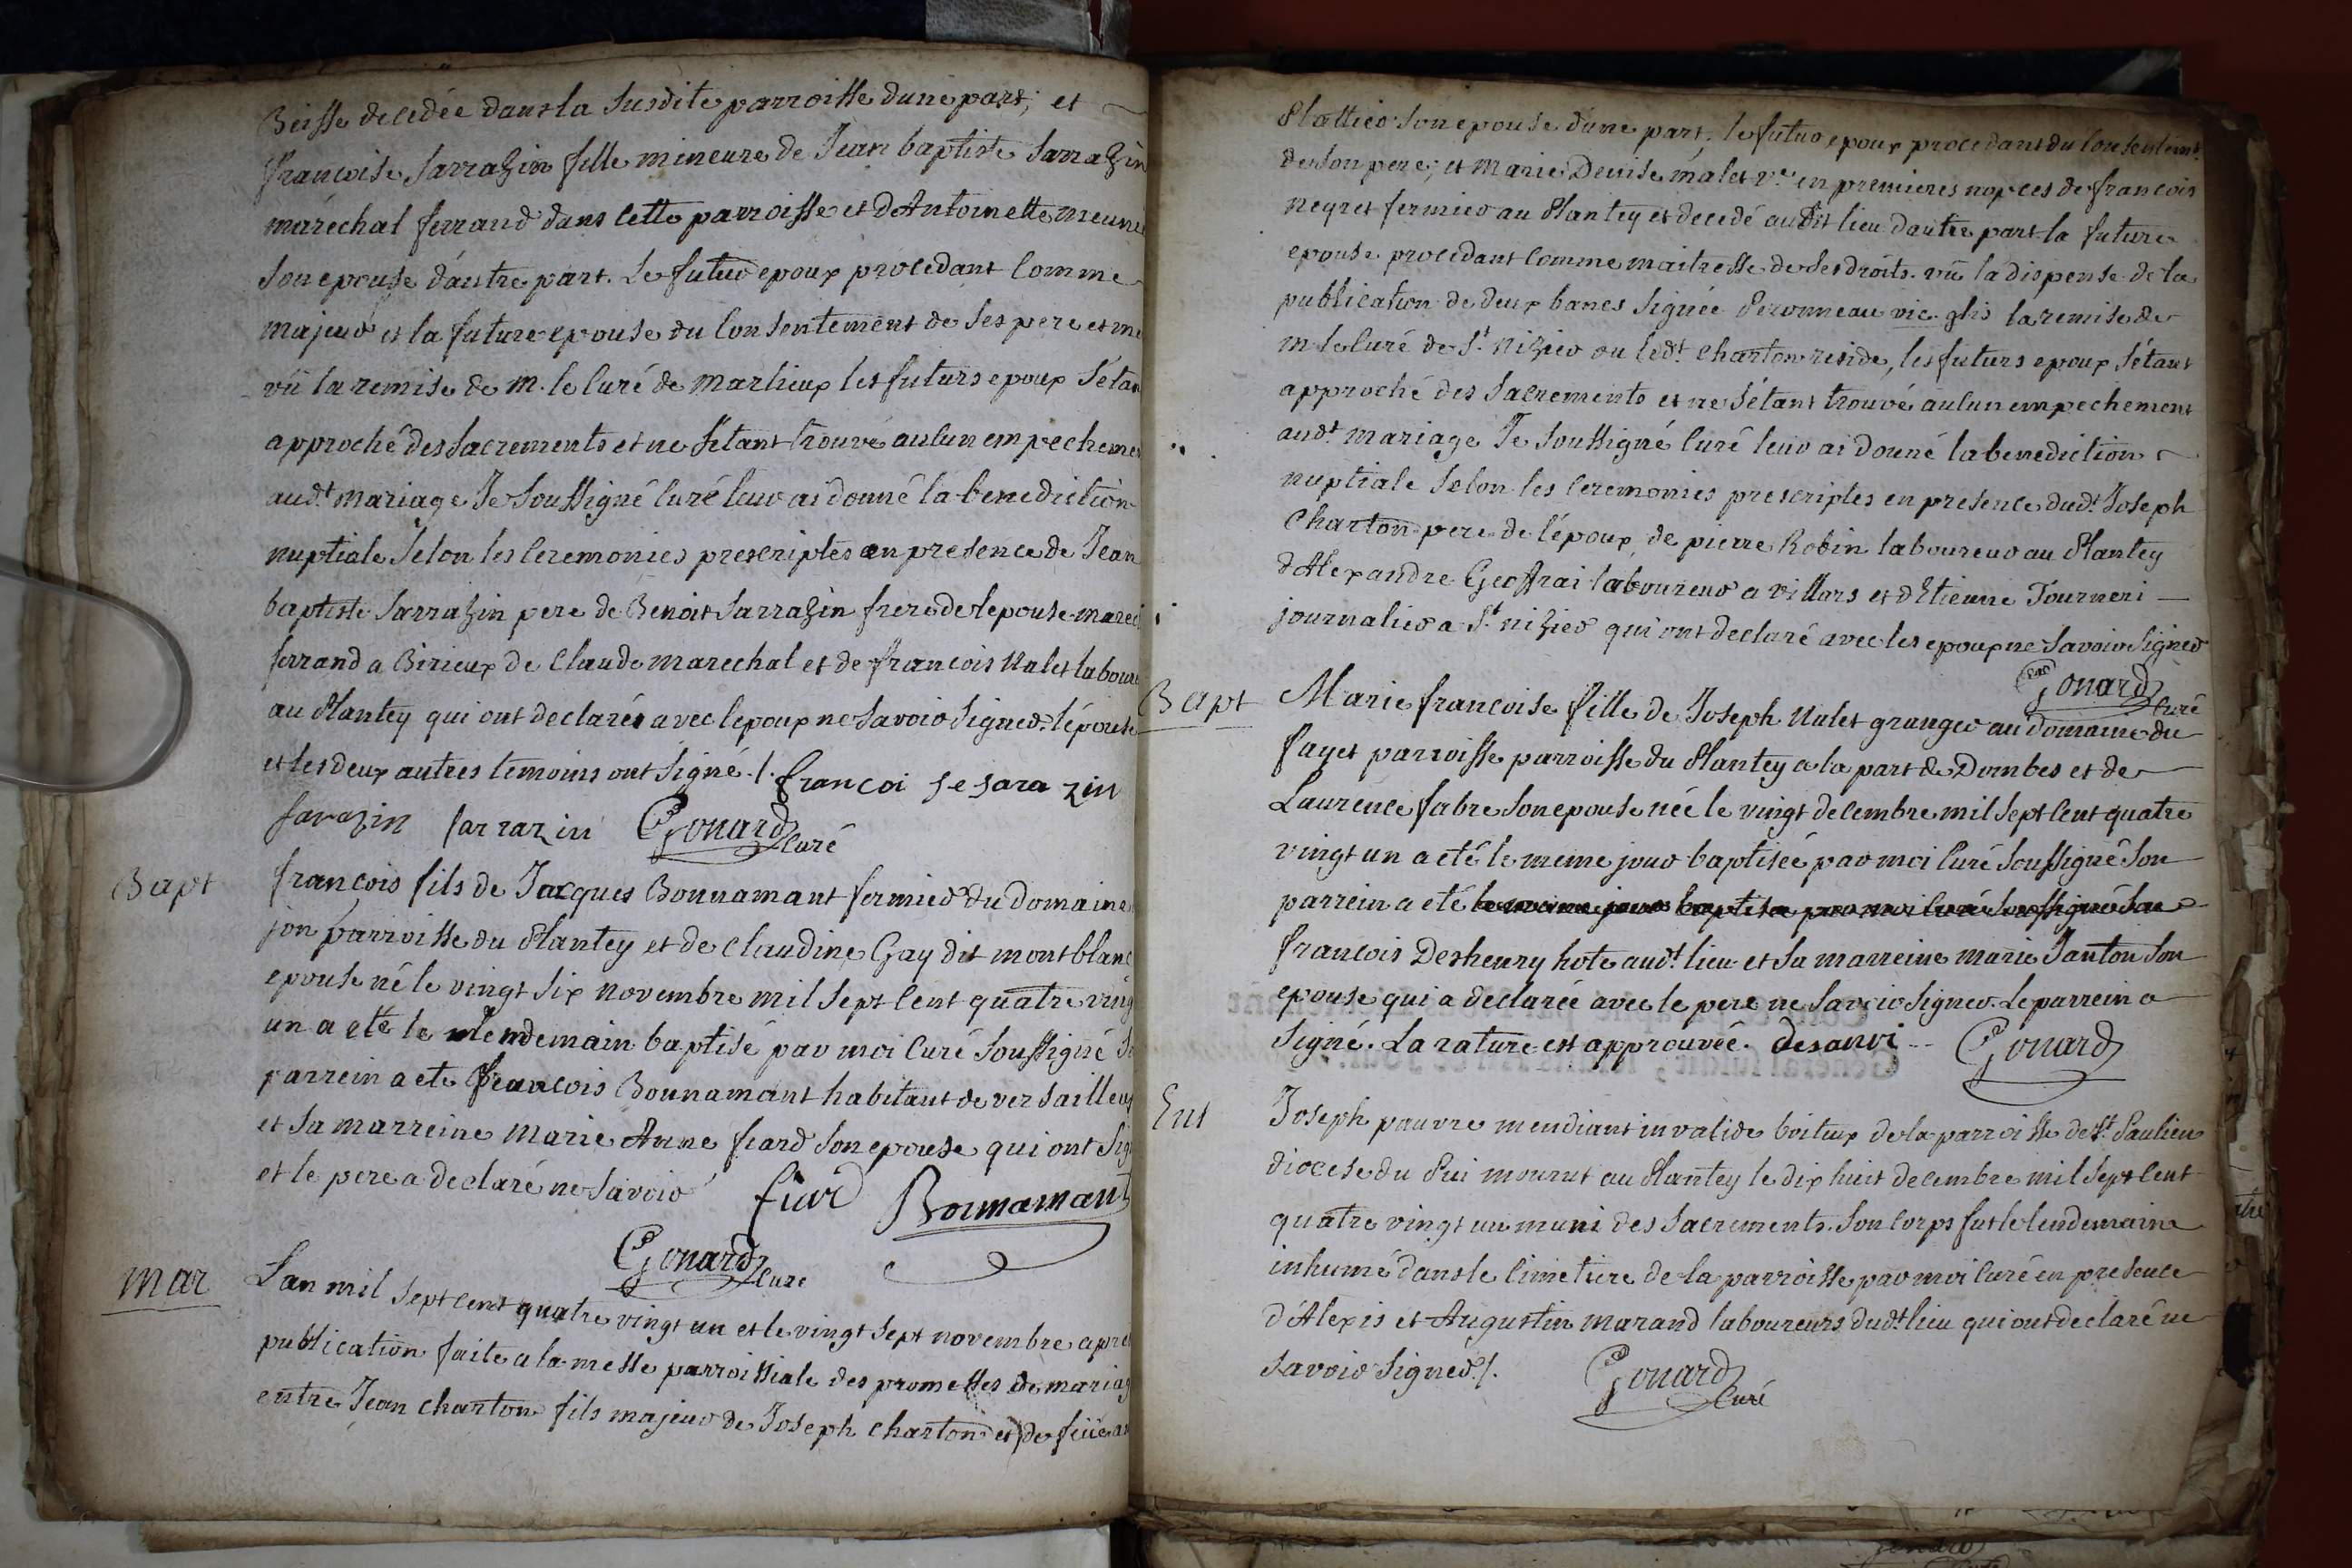 Beisse decedée dans la susdite parroisse dune part; et
françoise Sarrazin fille mineure de Jean baptiste Sarrazin
maréchal ferrand dans cette parroisse et d'Antoinette meunie
son epouse d'autre part. Le futur epoux procedant comme
majeur et la future epouse du consentement de ses pere et me
vü la remise de m. le curé de marlieux les futurs epoux s'etan
approché des sacrements et ne s'etant trouvé aucun empecheme
aud.t mariage Je soussigné curé leur ai donné la benediction
nuptiale selon les ceremonies prescriptes en presence de Jean
baptiste Sarrazin pere de Benoit Sarrazin frere de lepouse marec
ferrand a Birieux de claude marechal et de françois Nalet labour
au plantey qui ont declarés avec lepoux ne savoir signer. l'épouse
et les deux autres temoins ont signé ./. francoi se sara zin
savazin sarrazin Gonard curé
Bapt
françois fils de Jacques Bonnamant fermier du domaine
jon parroisse du plantey et de claudine Gay dit montblanc
epouse né le vingt six novembre mil sept cent quatre ving
un a eté le lendemain baptisé par moi curé soussigné so
parrein a eté françois Bonnamant habitant de versailleux
et sa marreine marie Anne fiard son epouse qui ont sig
et le pere a declaré ne savoir fiard Bonnamant
Gonard curé
mar
L'an mil sept cent quatre vingt un et le vingt sept novembre apre
publication faite a la messe parroissiale des promesses de mariag
entre Jean charton fils majeur de Joseph charton et de füe
son epouse d'une part, le futur epoux procedant du consentemt.
de son pere; et marie Denise malet v.e en premieres nopces de françois
negret fermier au plantey et decedé audit lieu dautre part la future
epouse procedant comme maitresse de ses droits. vü la dispense de la
publication de deux bancs signée peronneau vic. glis la remise de
m. le curé de S.t nizier ou led.t charton reside, les futurs epoux s'étant
approché des sacrements et ne s'étant trouvé aucun empechement
aud.t mariage Je soussigné curé leur ai donné la benediction
nuptiale selon les ceremonies prescriptes en presence dud.t Joseph
charton pere de l'époux, de pierre Robin laboureur au plantey
d'Alexandre Geoffrai laboureur a villars et d'Etienne Tourneri
journalier a S.t nizier qui ont declaré avec les epoux ne savoir signer
Gonard curé
Bapt
Marie françoise fille de Joseph Nalet granger au domaine du
fayet parroisse parroisse du plantey a la part de Dombes et de
Laurence fabre son epouse née le vingt decembre mil sept cent quatre
vingt un a eté le meme jour baptisée par moi curé soussigné son
parrein a eté le meme jour baptisé par moi curé soussigné son
françois Deshenry hote aud.t lieu et sa marreine marie Janton son
epouse qui a declarée avec le pere ne savoir signer. Le parrein a
signé. La rature est approuvée. desanvi Gonard
Ent
Joseph pauvre mendiant invalide boiteux de la parroisse de S.t paulien
diocese du pui mourut au plantey le dix huit decembre mil sept cent
quatre vingt un muni des sacrements. son corps fut le lendemain
inhumé dans le cimetiere de la parroisse par moi curé en presence
d'Alexis et Augustin marand laboureurs dud.t lieu qui ont declaré ne
savoir signer ./. Gonard curé